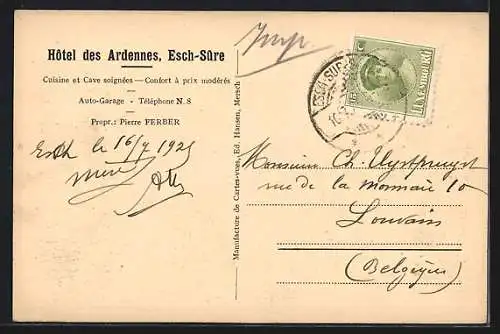 Hôtel des Ardennes, Esch-Sûre
Cuisine et Cave soignées — Confort à prix modérés
Auto-Garage - Téléphone N. 8
Propr.: Pierre FERBER
Esch le 16/7 1925
Manufacture de Cartes-vues, Ed. Hansen, Mersch
Imp
ESCH-SUR
LUXEMBOURG
Monsieur Ch.
rue de la monnaie 10
Louvain
(Belgique)